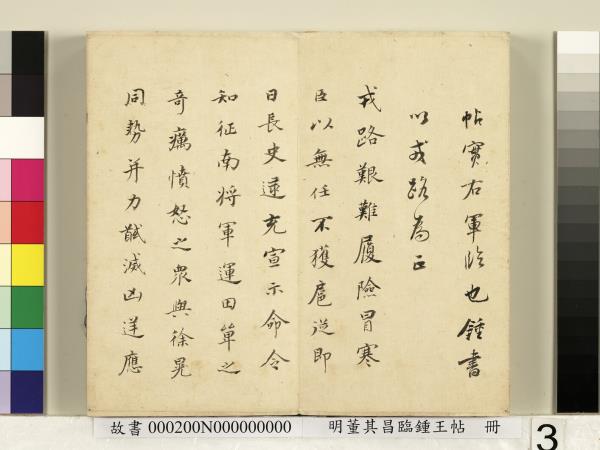 帖實右軍臨也鍾書
以戎路為正
戎路艱難履險冒寒
臣以無任不獲扈從即
日長史逯充宣示命令
知征南將軍運田單之
奇厲憤怒之眾與徐晃
同勢并力馘滅凶逆應
故書 000200N000000000 明董其昌臨鍾王帖 冊
3